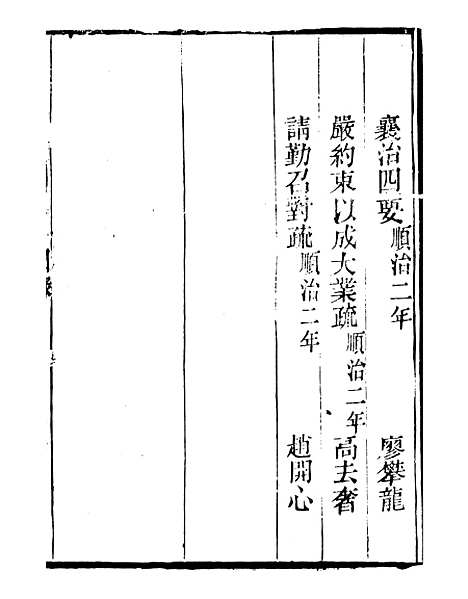 襄治四要順治二年 廖攀龍
嚴約束以成大業疏順治二年 高去奢
請勤召對疏順治二年 趙開心